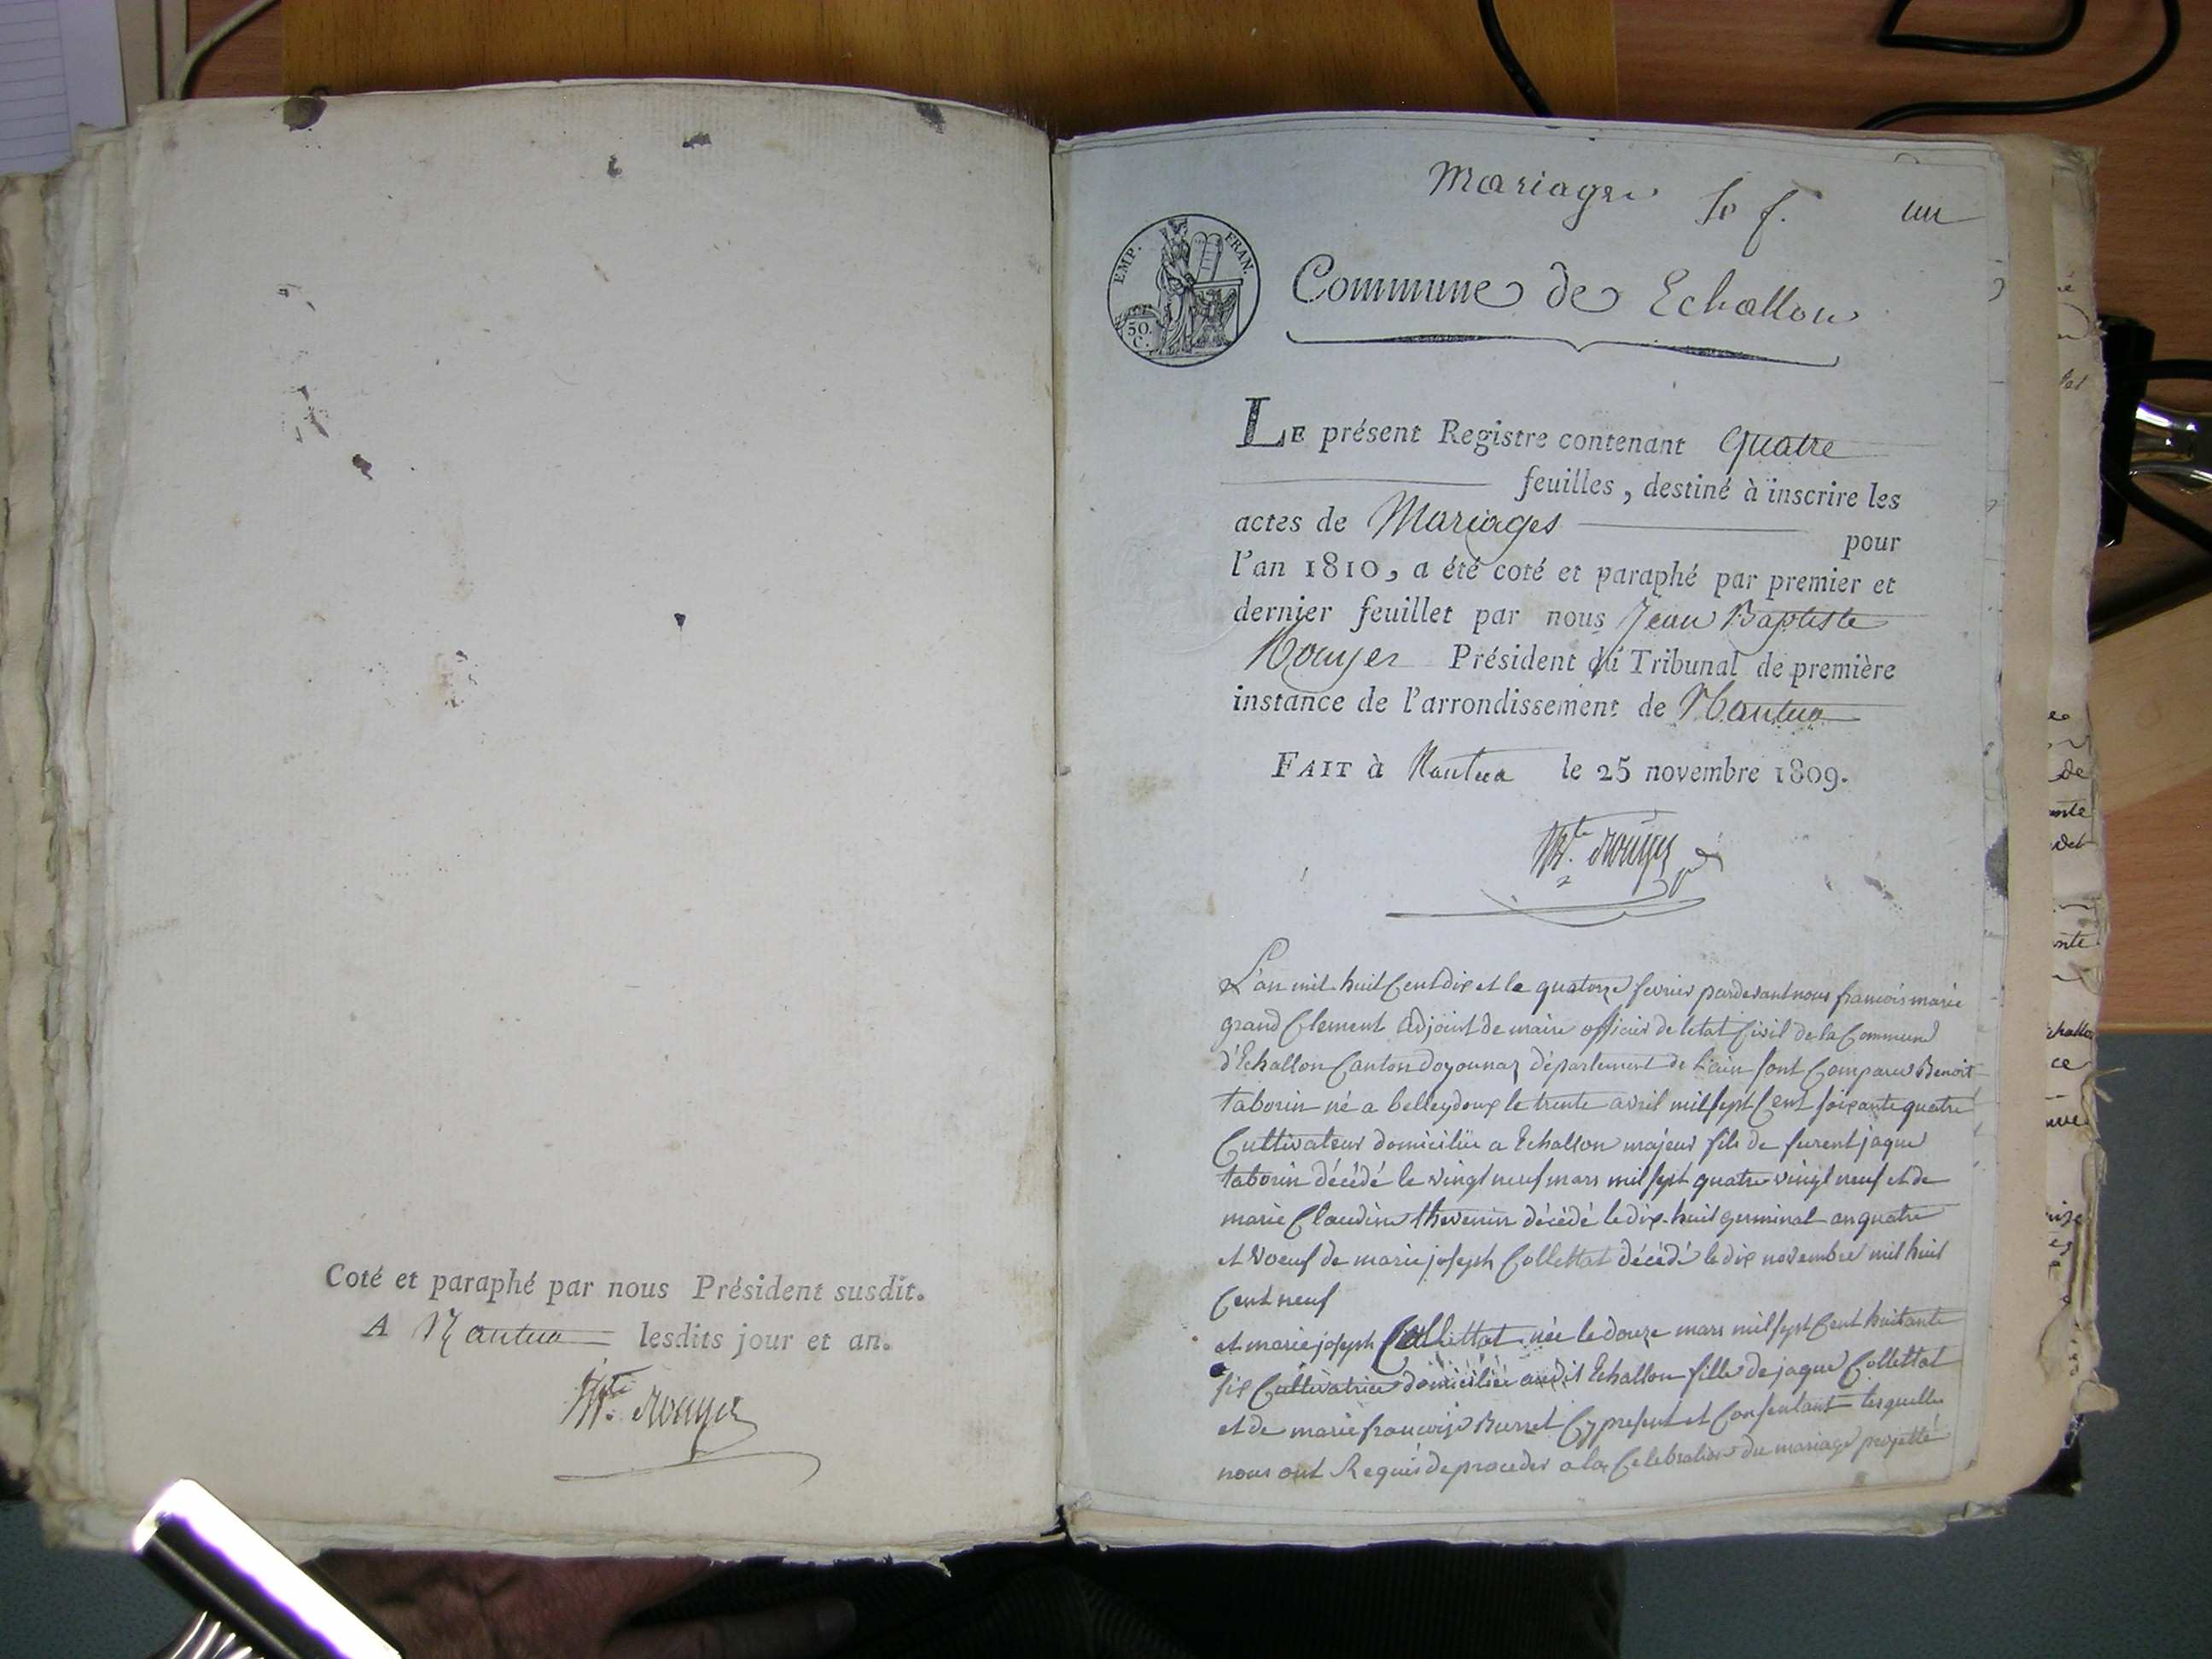 Coté et paraphé par nous Président susdit.
A Nantua lesdits jour et an.
Bte. Rouyer
Mariage 1er f. un
EMP. FRAN.
50.
C.
Commune de Echallon
LE présent Registre contenant Quatre
feuilles, destiné à inscrire les
actes de Mariages
pour
l'an 1810, a été coté et paraphé par premier et
dernier feuillet par nous Jean Baptiste
Rouyer Président du Tribunal de première
instance de l'arrondissement de Nantua
FAIT à Nantua le 25 novembre 1809.
Bte. Rouyer
L'an mil huit Cent dix et le quatorze fevrier pardevant nous francois marie
grand Clement adjoint de maire officier de letat Civil de la Commune
d'Echallon Canton doyonnaz département de L'ain sont Comparus Benoit
taborin né a belleydoux le trente avril mil sept Cent soixante quatre
Cultivateur domicilié a Echallon majeur fils de furent jaque
taborin décédé le vingt neuf mars mil sept quatre vingt neuf et de
marie Claudine thevenin décédé le dix-huit germinal an quatre
et Voeuf de marie joseph Collettat décédé le dix novembre mil huit
Cent neuf
et marie joseph Collettat née le douze mars mil sept Cent huitante
six Cultivatrice domiciliée audit Echallon fille de jaque Collettat
et de marie francoise Burret Cy present et Consentant lesquelles
nous ont Requis de proceder a la Celebration du mariage projetté